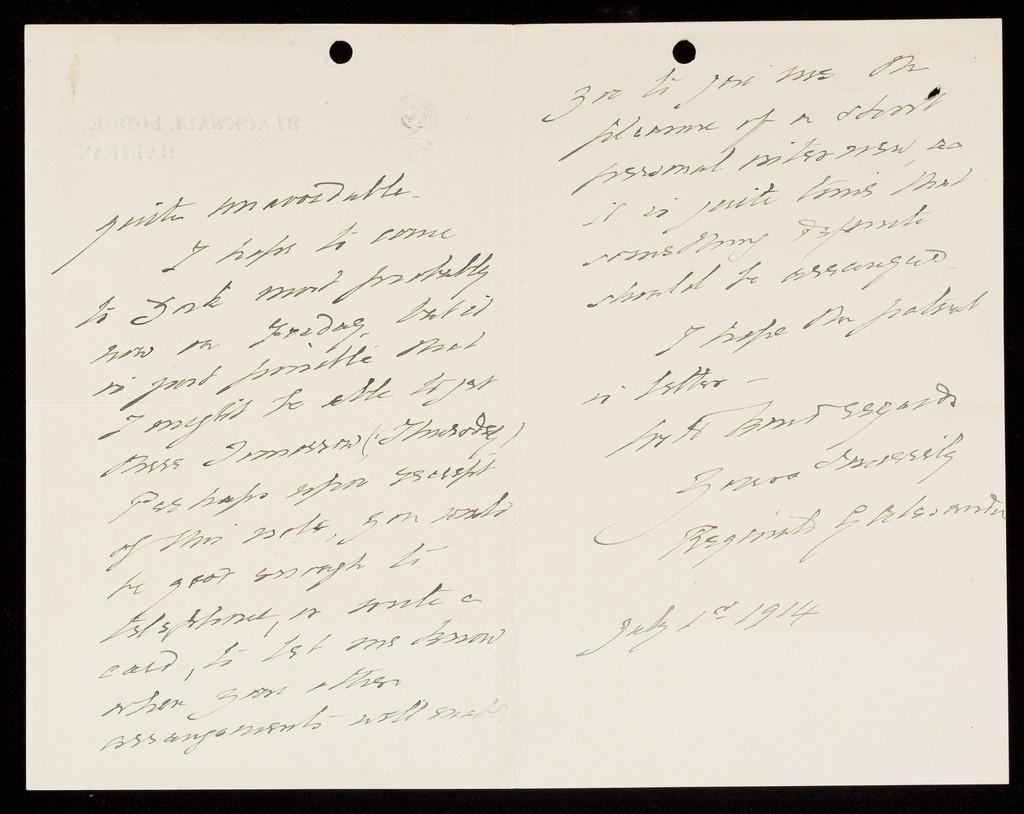 quite unavoidable.
I hope to come
to York most probably
now on Friday, but it
is just possible that
I might be able to get
there Tomorrow (Thursday)
Perhaps upon receipt
of this note, you would
be good enough to
telephone, or write a
card, to let me know
when your other
arrangements will enable
you to give me the
pleasure of a short
personal interview, as
it is quite time that
something definite
should be arranged.
I hope the patient
is better –
With kind regards
Yours sincerely
Reginald G Alexander
July 1st 1914
BLACKWALL LODGE
HALIFAX